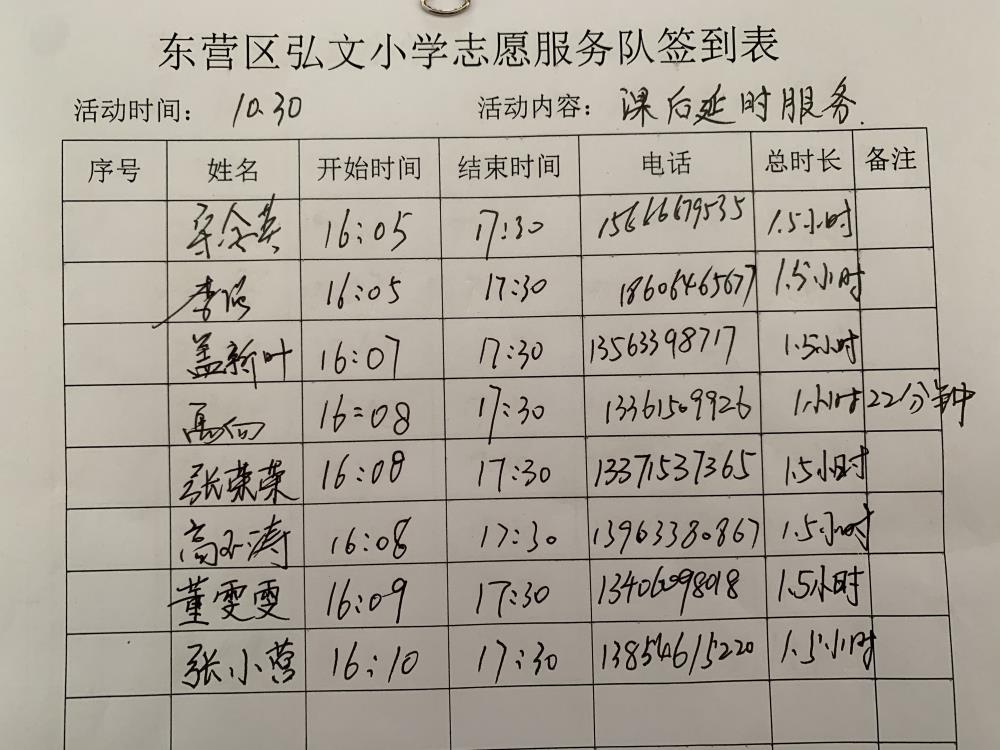 东营区弘文小学志愿服务队签到表
活动时间： 10.30 活动内容： 课后延时服务.
序号 姓名 开始时间 结束时间 电话 总时长 备注
16:05 17:30 15666679535 1.5小时
李 16:05 17:30 18606465677 1.5小时
盖新叶 16:07 17:30 13563398717 1.5小时
16:08 17:30 13361509926 1小时22分钟
张荣荣 16:08 17:30 13371537365 1.5小时
高小涛 16:08 17:30 13963380867 1.5小时
董雯雯 16:09 17:30 13406098018 1.5小时
张小营 16:10 17:30 13854615220 1.5小时